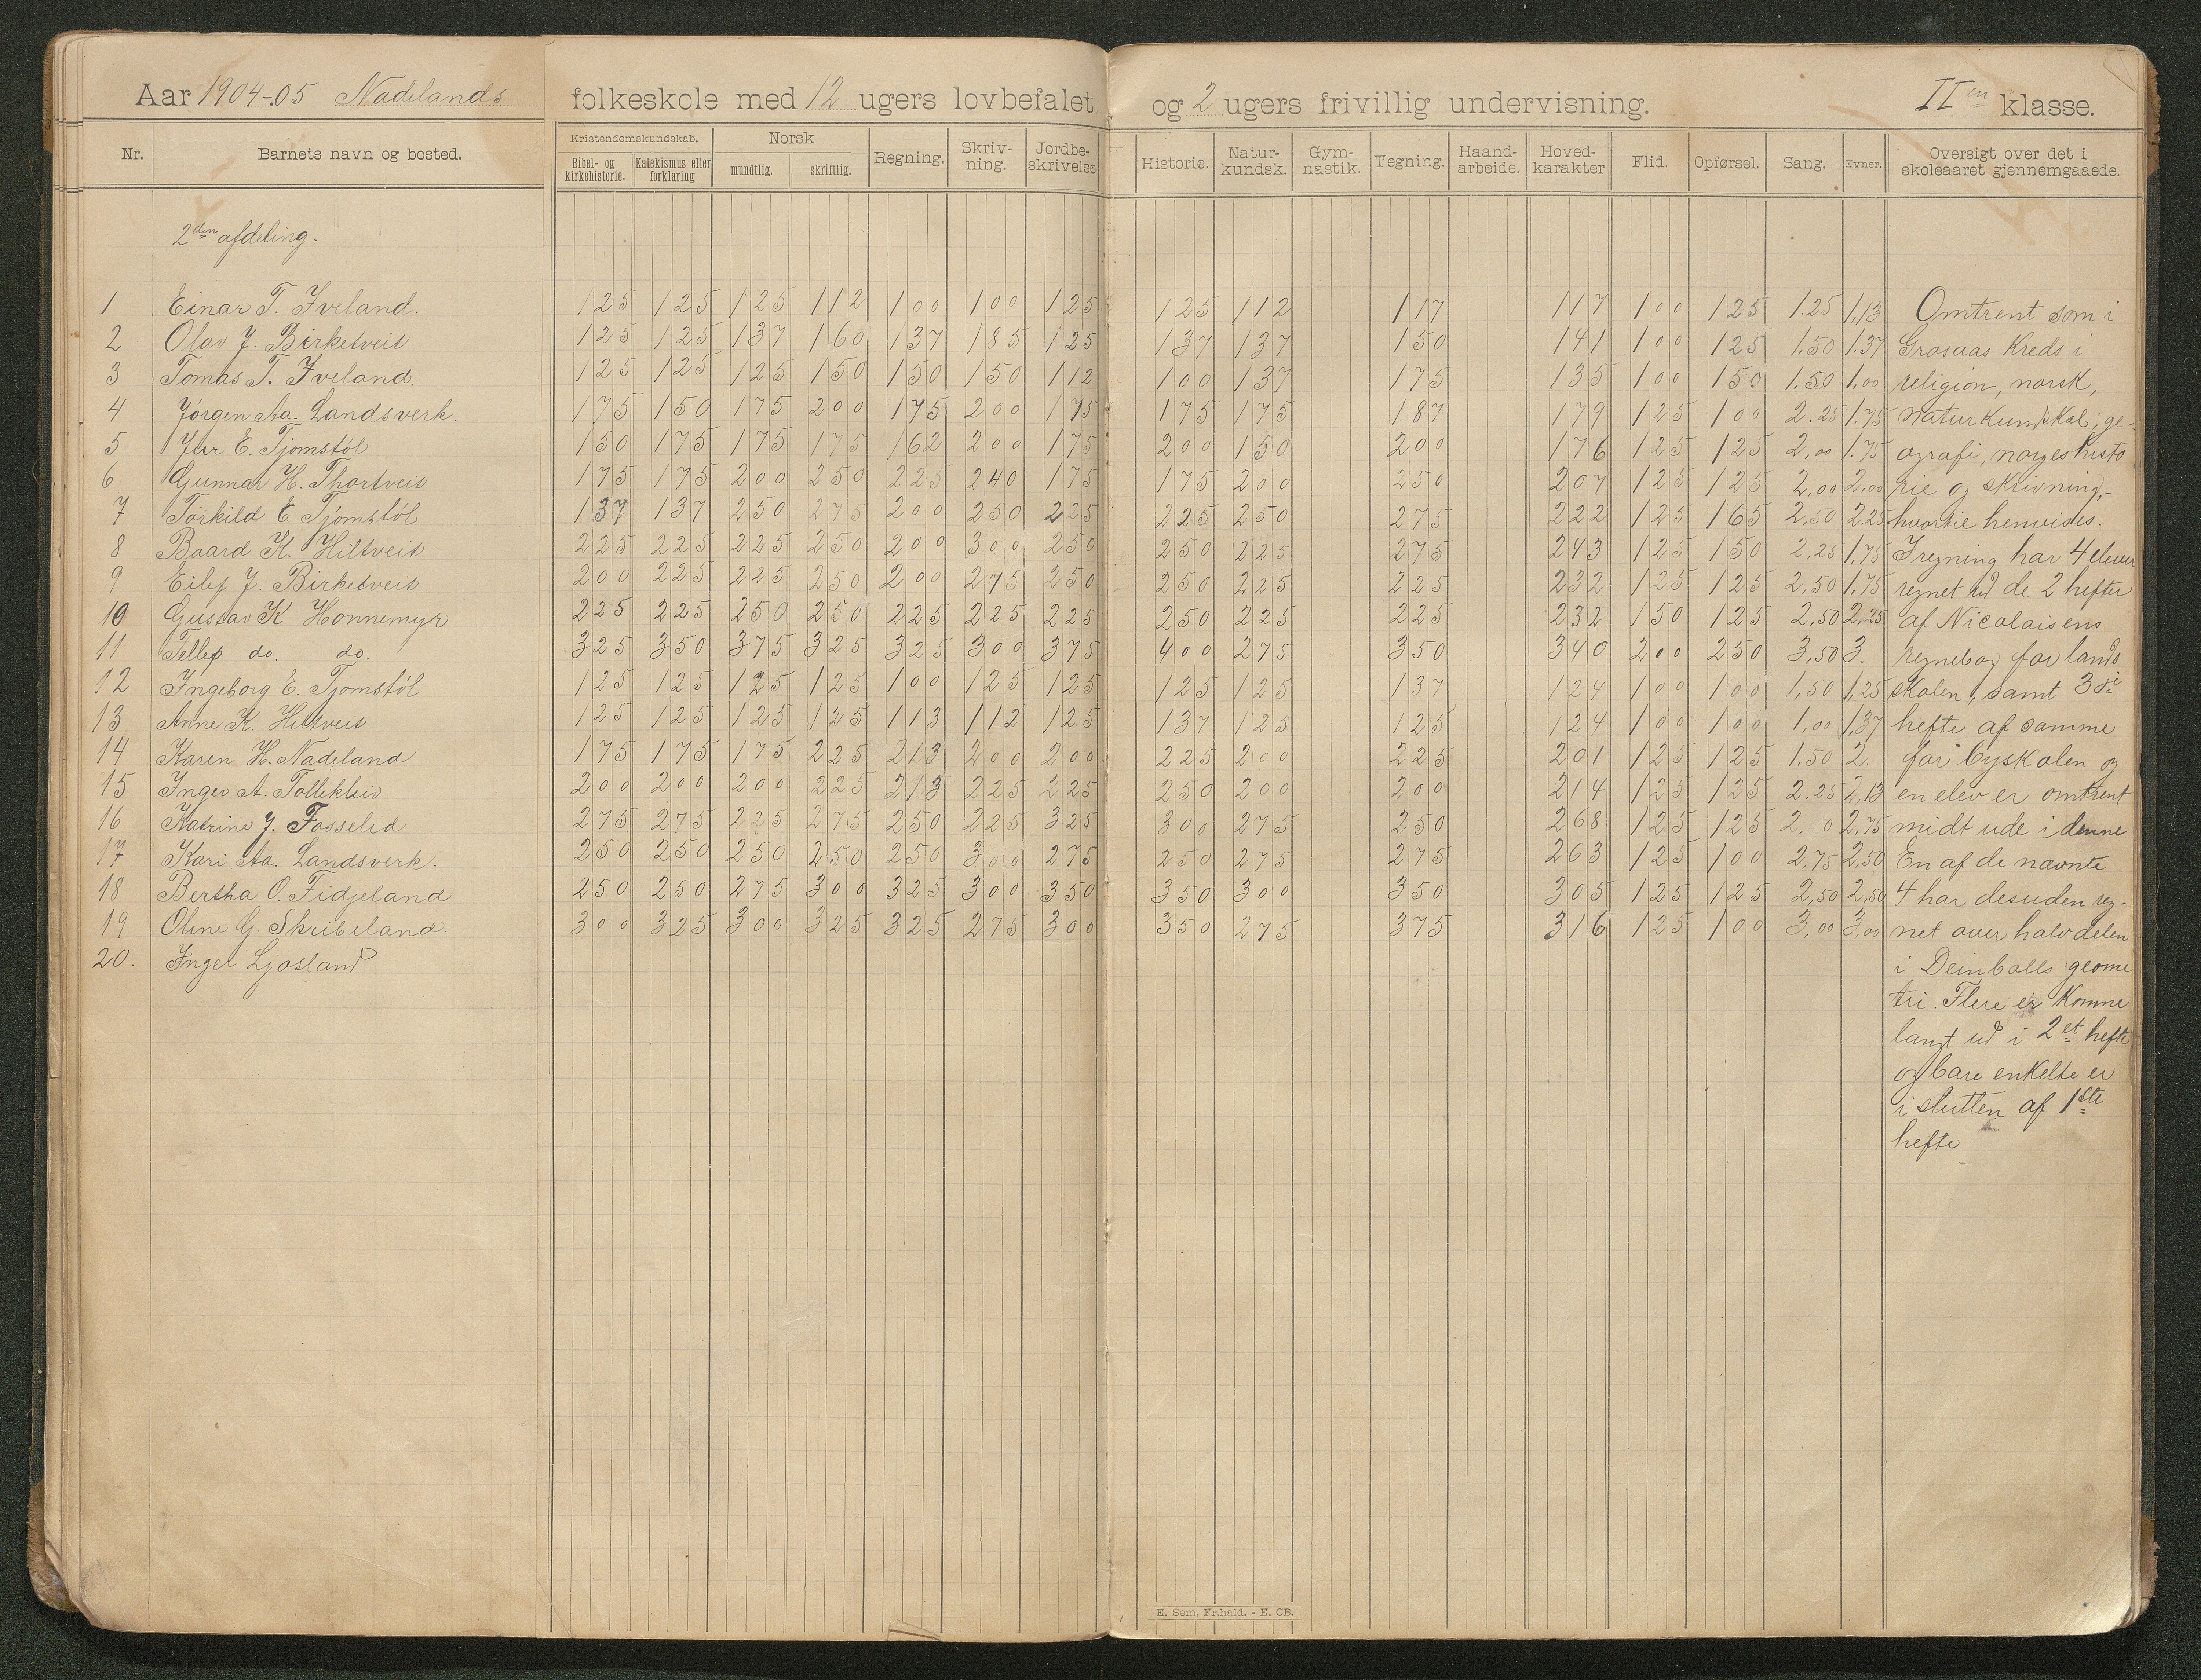 Aar 1904-05 Nadelands folkeskole med 12 ugers lovbefalet og 2 ugers frivillig undervisning. IIen klasse.
Nr. Barnets navn og bosted. Kristendomskundskab. Bibel- og kirkehistorie. Katekismus eller forklaring Norsk mundtlig. skriftlig. Regning. Skriv-ning. Jordbe-skrivelse Historie. Natur-kundsk. Gym-nastik. Tegning. Haand-arbeide. Hoved-karakter Flid. Opførsel. Sang. Evner. Oversigt over det i skoleaaret gjennemgaaede.
2den afdeling.
1 Einar T. Iveland. 125 125 125 112 100 100 125 125 112 117 117 100 125 1.25 1,13 Omtrent som i
2 Olav J. Birketveit 125 125 137 160 137 185 125 137 137 150 141 100 125 1.50 1.37 Grosaas Kreds i
3 Tomas T. Iveland 125 125 125 150 150 150 112 100 137 175 135 100 150 1.50 1,00 religion, norsk,
4 Jórgen Aa. Landsverk. 175 150 175 200 175 200 175 175 175 187 179 125 100 2.25 1.75 naturkundskab, ge-
5 E. Tjomstól 150 175 175 175 162 200 175 200 150 200 176 125 125 2,00 1.75 ografi, norges histo
6 Gunnar H. Thortveit 175 175 200 250 225 240 175 175 200 250 207 125 125 2,00 2,00 rie og skrivning,-
7 Torkild E. Tjomstól 137 137 250 275 200 250 225 225 250 275 222 125 165 2,50 2.25 hvortil henvises.
8 Baard K. Hiltveit 225 225 225 250 200 300 250 250 225 275 243 125 150 2,25 1,75 I regning har 4 elever
9 Eilef J. Birketveit 200 225 225 250 200 275 250 250 225 225 232 125 125 2,50 1,75 regnet ud de 2 hefter
10 Gustav K Honnemyr 225 225 250 250 225 225 225 250 225 225 232 150 125 2,50 2,25 af Nicolaisens
11 Tellef do. do. 325 350 375 325 325 300 375 400 275 350 340 200 250 3,50 3. regnebog for lands
12 Ingeborg E. Tjomstól 125 125 125 125 100 125 125 125 125 137 124 100 100 1,50 1,25 skolen, samt 3di
13 Anne K. Hiltveit 125 125 125 125 113 112 125 137 125 125 124 100 100 1,00 1,37 hefte af samme
14 Karen H. Nadeland 175 175 175 225 213 200 200 225 200 225 201 125 125 1.50 2. for byskolen og
15 Inger A. Tolleklev 200 200 200 225 213 225 225 250 200 200 214 125 125 2.25 2,13 en elev er omtrent
16 Katrine J. Fosselid 275 275 225 275 250 225 325 300 275 250 268 125 125 2, 0 2,75 midt ude i denne
17 Kari Aa. Landsverk. 250 250 250 250 250 300 275 250 275 275 263 125 100 2,75 2,50 En af de nævnte
18 Bertha O. Fidjeland 250 250 275 300 325 300 350 350 300 350 305 125 125 2,50 2,50 4 har desuden reg-
19 Oline G. Skribeland. 300 325 300 325 325 275 300 350 275 375 316 125 100 3,00 3,00 net over halvdelen
20. Inger Ljosland i Deinbolls geome
tri. Flere er komne
langt ud i 2et hefte
og bare enkelte er
i slutten af 1ste
hefte
E. Sem, Fr.hald. - E. CB.